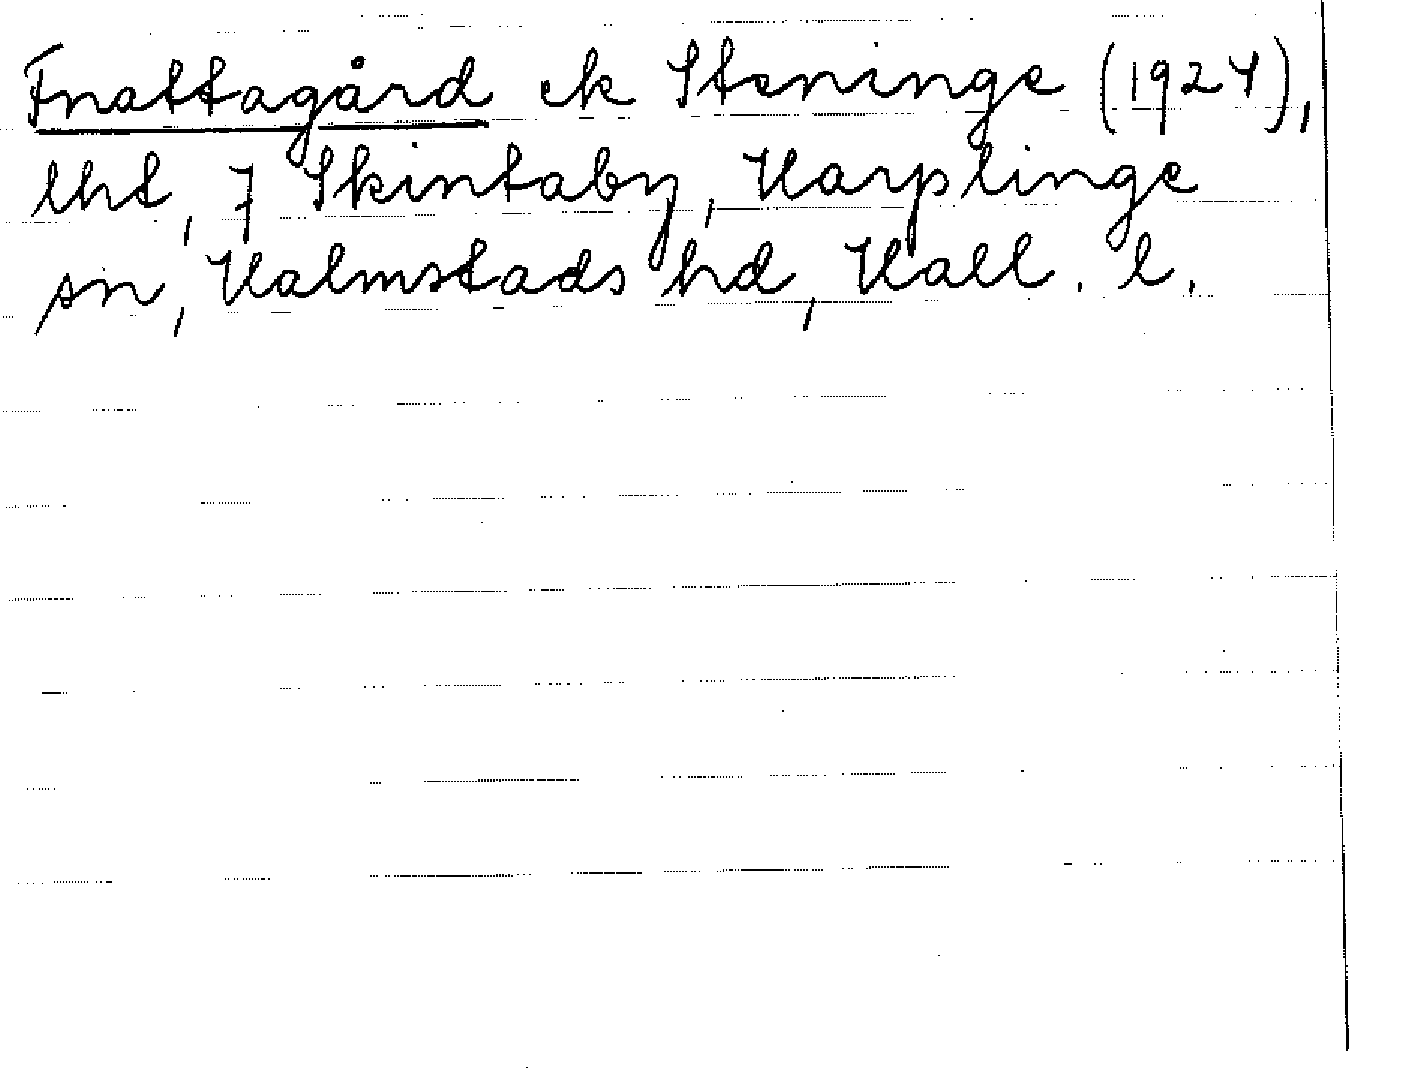 Fnattagård ek Steninge (1924),
lht, 7 Skintaby, Harplinge
sn, Halmstads hd, Hall. l.